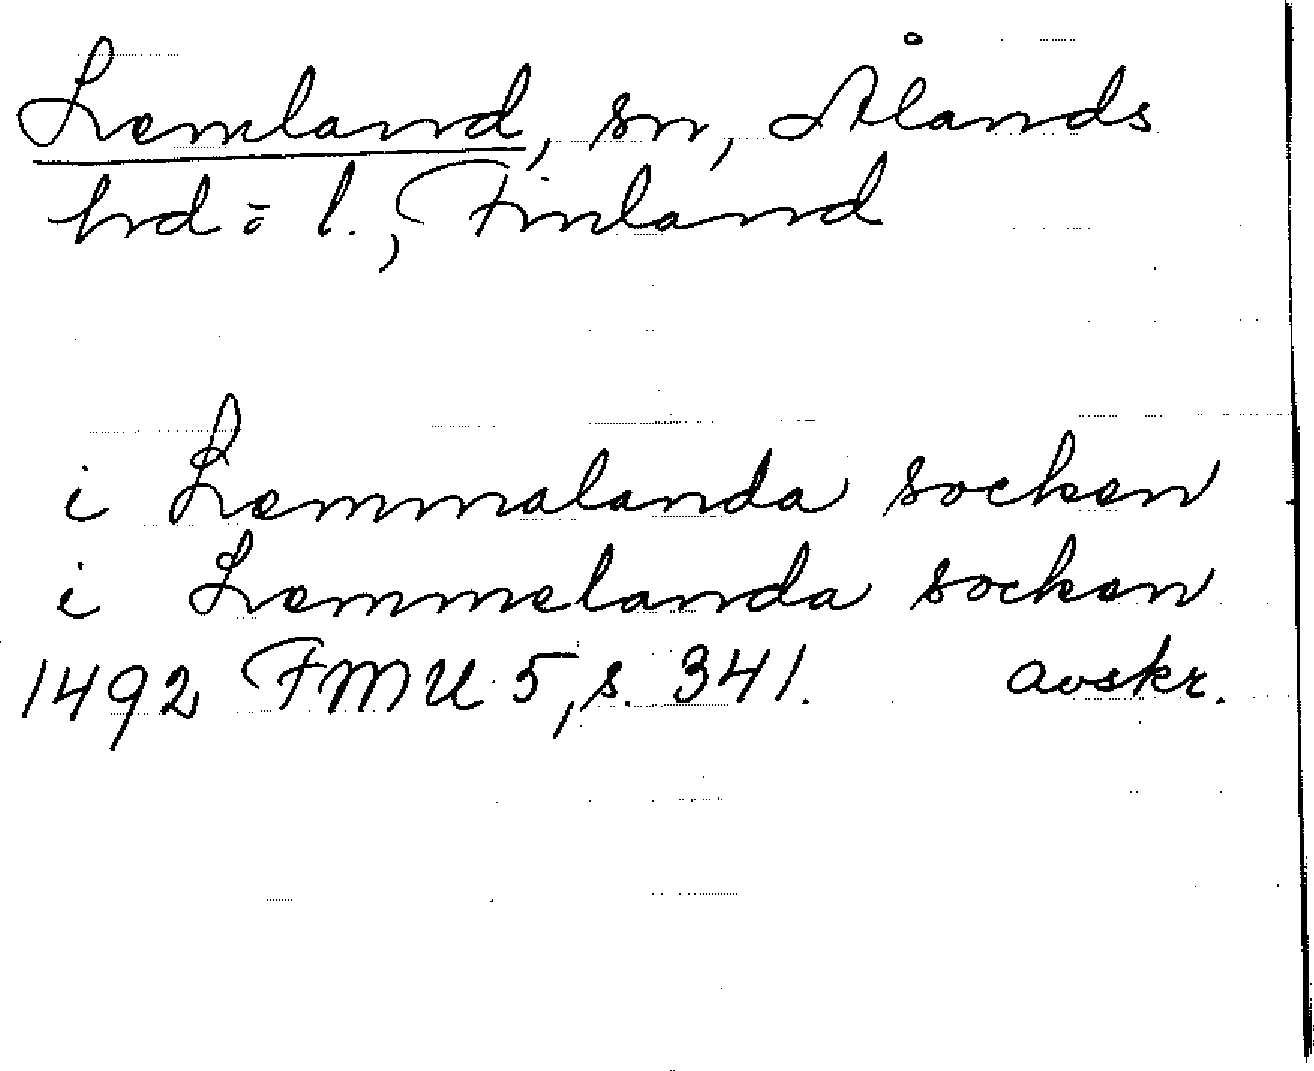 Lemland, sn, Ålands
hd o l., Finland
i Lemmalanda socken
i Lemmelanda socken
1492 FMU 5, s. 341. avskr.